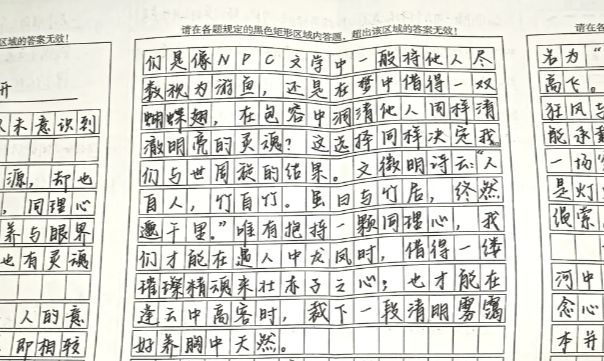 请在各题规定的黑色矩形区域内答题，超出该区域的答案无效！
们是像NPC文学中一般将他人尽
数视为游鱼，还是在梦中借得一双
蝴蝶翅，在包容中洞清他人同样清
澈明亮的灵魂？这选择同样决定我
们与世周旋的结果。文徵明诗云："人
自人，竹自竹。虽曰与竹居，终然
邈千里。"唯有抱持一颗同理心，我
们才能在愚人中龙凤时，借得一缕
璀璨精魂来壮赤子之心；也才能在
逢云中高客时，裁下一段清明雾霭
好养胸中天然。
区域的答案无效！
开
未意识到
源，却也
，同理心
养与眼界
也有灵魂
人的意
即相较
请在各
名为"
高飞。
狂风与
能承载
一场"
是灯
绳索
河中
念心
本并